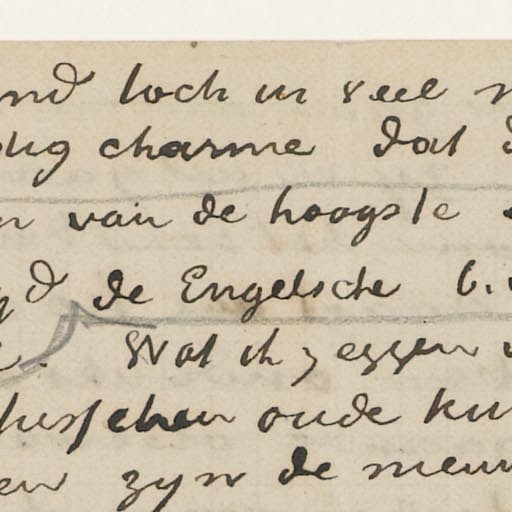 toch in veel
charme dat
van de hoogste
de Engelsche b.v
Wat ik zeggen
tusschen oude ku
zyn de nieuw